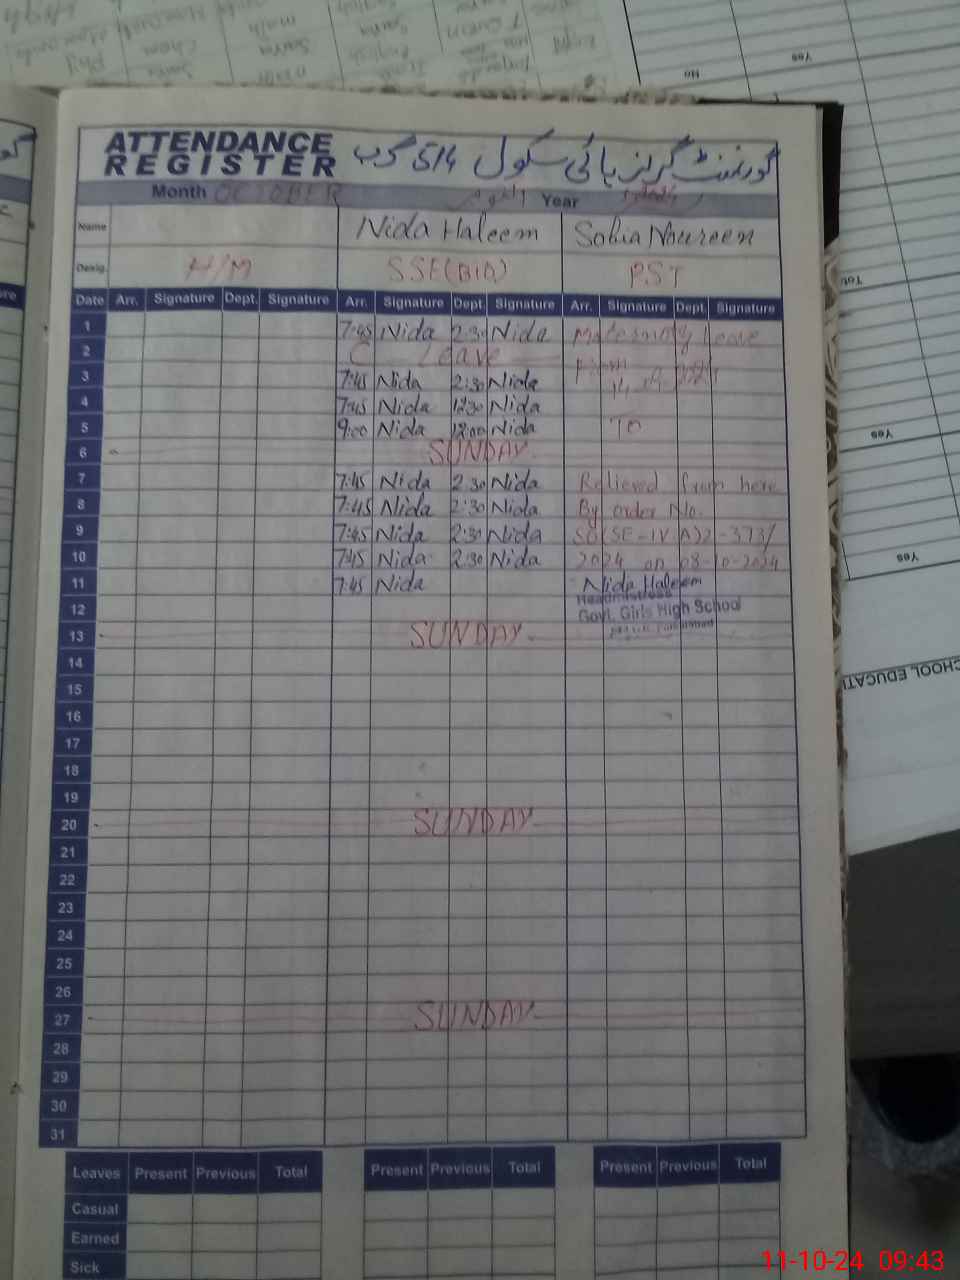 ATTENDANCE
REGISTER
گورنمنٹ گرلز ہائی سکول 514 گ ب
Month OCTOBER Year 2024
Name Nida Haleem Sobia Noureen
Desig. H/M SSE(BIO) PST
Date Arr. Signature Dept. Signature Arr. Signature Dept. Signature Arr. Signature Dept. Signature
1 7:45 Nida 2:30 Nida Maternity Leave
2 C Leave
3 7:45 Nida 2:30 Nida
4 7:45 Nida 12:30 Nida
5 9:00 Nida 12:00 Nida TO
6 SUNDAY
7 7:45 Nida 2:30 Nida Relieved from here
8 7:45 Nida 2:30 Nida By order No.
9 7:45 Nida 2:30 Nida SO(SE-IV A)2-373/
10 7:45 Nida 2:30 Nida 2024 on 08-10-2024
11 7:45 Nida Nida Haleem
Headmistress
12 Govt. Girls High School
13 SUNDAY
14
15
16
17
18
19
20 SUNDAY
21
22
23
24
25
26
27 SUNDAY
28
29
30
31
Leaves Present Previous Total Present Previous Total Present Previous Total
Casual
Earned
Sick
No
Yes
Yes
Yes
CHOOL EDUCATI
11-10-24 09:43